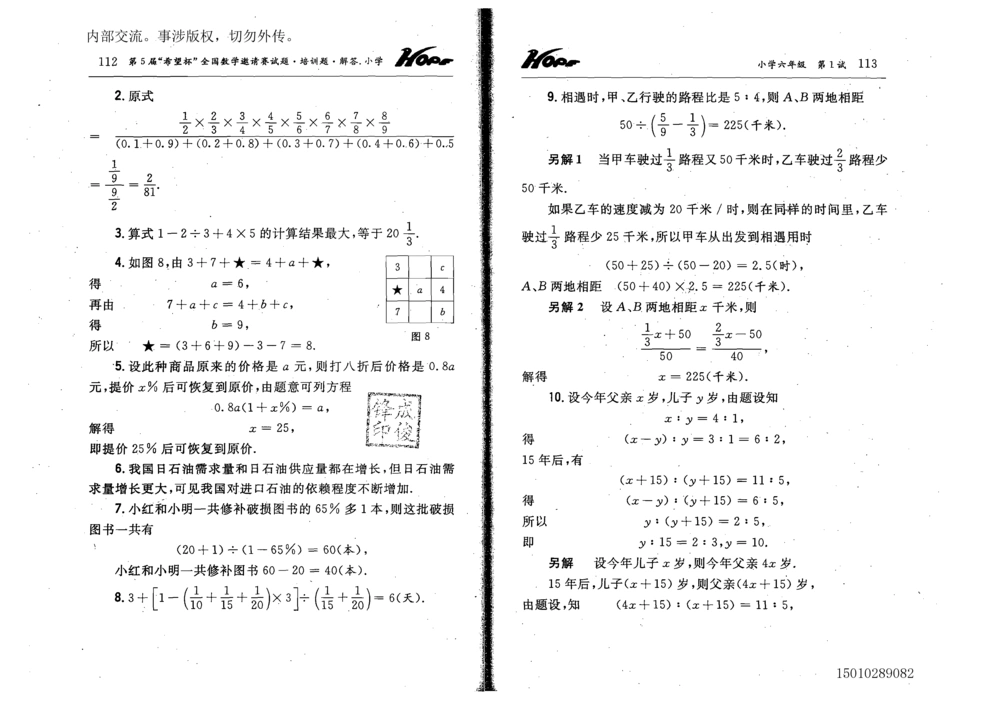 内部交流。事涉版权，切勿外传。
112 第5届“希望杯”全国数学邀请赛试题·培训题·解答.小学 HOPE
2. 原式
= (1/2×2/3×3/4×4/5×5/6×6/7×7/8×8/9)/((0.1+0.9)+(0.2+0.8)+(0.3+0.7)+(0.4+0.6)+0.5)
= (1/9)/(9/2) = 2/81.
3. 算式 1－2÷3＋4×5 的计算结果最大,等于 20 1/3.
4. 如图 8,由 3＋7＋★ = 4＋a＋★,
得 a = 6,
再由 7＋a＋c = 4＋b＋c,
得 b = 9,
所以 ★ = (3＋6＋9)－3－7 = 8.
3 c
★ a 4
7 b
图 8
5. 设此种商品原来的价格是 a 元,则打八折后价格是 0.8a
元,提价 x% 后可恢复到原价,由题意可列方程
0.8a(1＋x%) = a,
解得 x = 25,
即提价 25% 后可恢复到原价.
成俊锋印
6. 我国日石油需求量和日石油供应量都在增长,但日石油需
求量增长更大,可见我国对进口石油的依赖程度不断增加.
7. 小红和小明一共修补破损图书的 65% 多 1 本,则这批破损
图书一共有
(20＋1)÷(1－65%) = 60(本),
小红和小明一共修补图书 60－20 = 40(本).
8. 3＋[1－(1/10＋1/15＋1/20)×3]÷(1/15＋1/20) = 6(天).
HOPE 小学六年级 第1试 113
9. 相遇时,甲、乙行驶的路程比是 5∶4,则 A、B 两地相距
50÷(5/9－1/3) = 225(千米).
另解1 当甲车驶过 1/3 路程又 50 千米时,乙车驶过 2/3 路程少
50 千米.
如果乙车的速度减为 20 千米／时,则在同样的时间里,乙车
驶过 1/3 路程少 25 千米,所以甲车从出发到相遇用时
(50＋25)÷(50－20) = 2.5(时),
A、B 两地相距 (50＋40)×2.5 = 225(千米).
另解 2 设 A、B 两地相距 x 千米,则
(1/3x＋50)/50 = (2/3x－50)/40,
解得 x = 225(千米).
10. 设今年父亲 x 岁,儿子 y 岁,由题设知
x∶y = 4∶1,
得 (x－y)∶y = 3∶1 = 6∶2,
15 年后,有
(x＋15)∶(y＋15) = 11∶5,
得 (x－y)∶(y＋15) = 6∶5,
所以 y∶(y＋15) = 2∶5,
即 y∶15 = 2∶3,y = 10.
另解 设今年儿子 x 岁,则今年父亲 4x 岁.
15 年后,儿子(x＋15) 岁,则父亲(4x＋15) 岁,
由题设,知 (4x＋15)∶(x＋15) = 11∶5,
15010289082